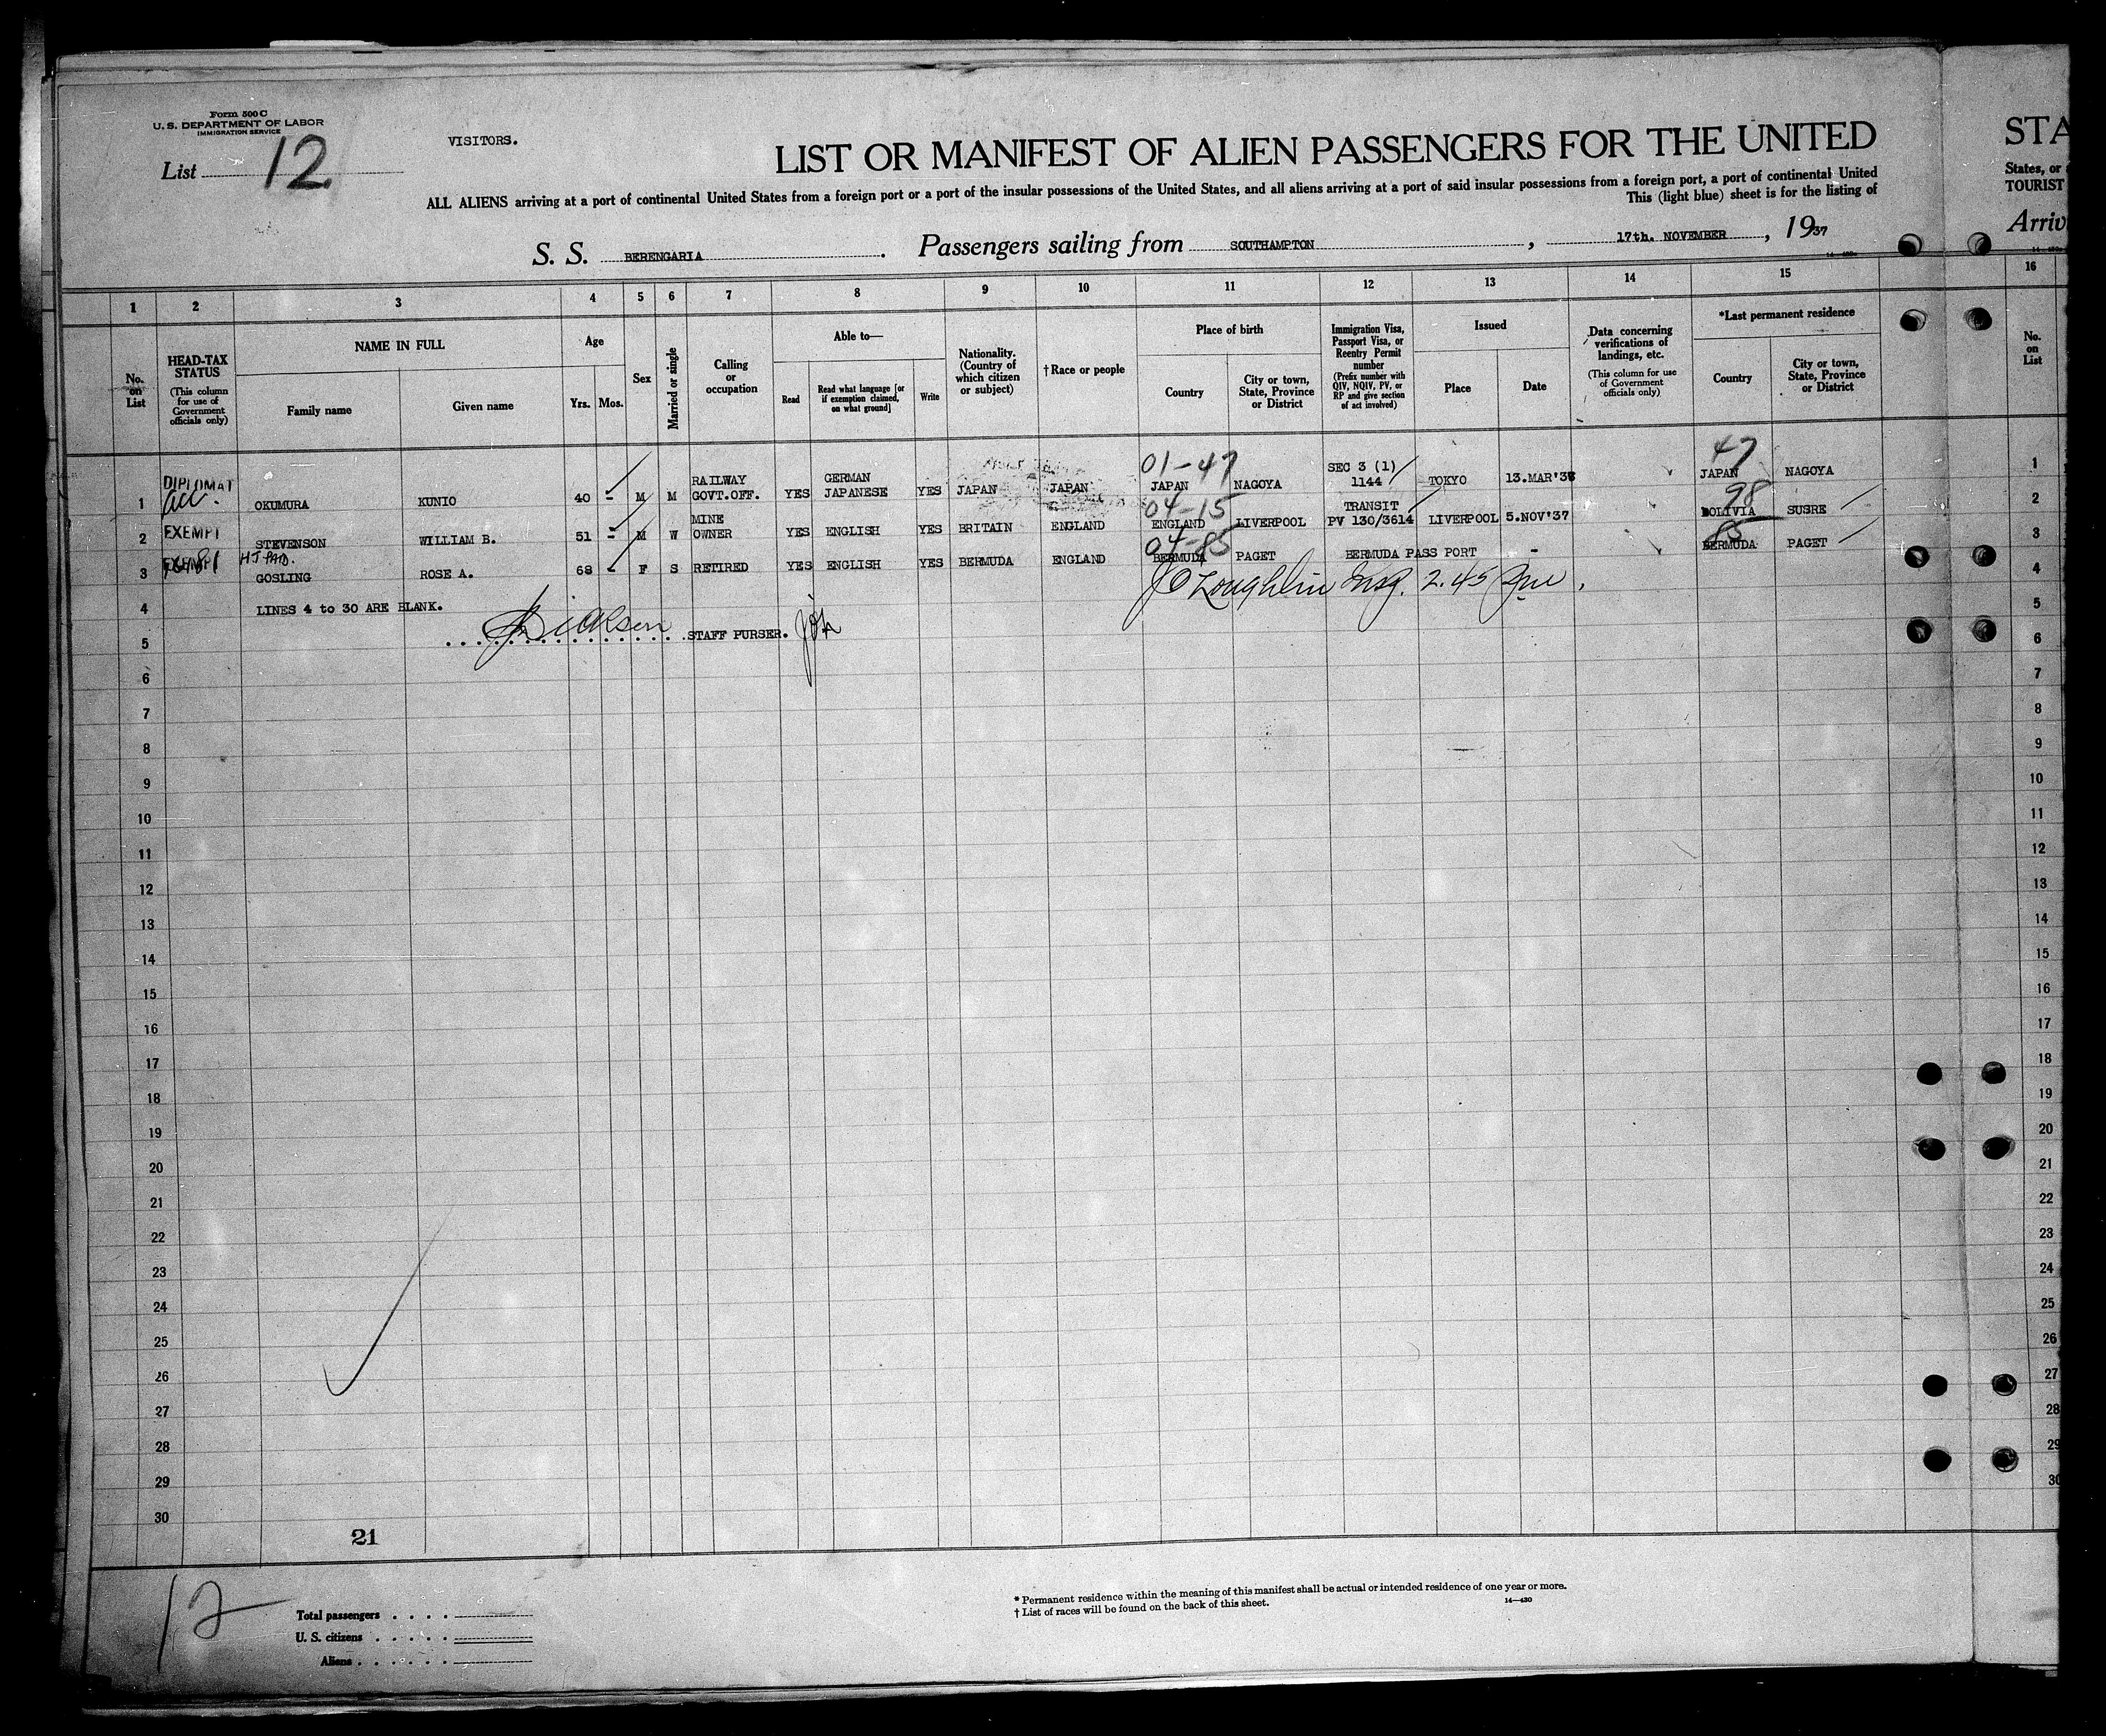 Form 500 C
U. S. DEPARTMENT OF LABOR
IMMIGRATION SERVICE
List 12
VISITORS.
LIST OR MANIFEST OF ALIEN PASSENGERS FOR THE UNITED
STA
ALL ALIENS arriving at a port of continental United States from a foreign port or a port of the insular possessions of the United States, and all aliens arriving at a port of said insular possessions from a foreign port, a port of continental United
States, or
This (light blue) sheet is for the listing of
TOURIST
S. S. BERENGARIA. Passengers sailing from SOUTHAMPTON, 17th. NOVEMBER, 1937
Arriv
1 2 3 4 5 6 7 8 9 10 11 12 13 14 15 16
No. on List
HEAD-TAX STATUS
(This column for use of Government officials only)
NAME IN FULL
Family name
Given name
Age
Yrs. Mos.
Sex
Married or single
Calling or occupation
Able to—
Read
Read what language [or if exemption claimed, on what ground]
Write
Nationality. (Country of which citizen or subject)
† Race or people
Place of birth
Country
City or town, State, Province or District
Immigration Visa, Passport Visa, or Reentry Permit number
(Prefix number with QIV, NQIV, PV, or RP and give section of act involved)
Issued
Place
Date
Data concerning verifications of landings, etc.
(This column for use of Government officials only)
*Last permanent residence
Country
City or town, State, Province or District
No. on List
01-47
47
1 DIPLOMAT OKUMURA KUNIO 40 - M M RAILWAY GOVT.OFF. YES GERMAN JAPANESE YES JAPAN JAPAN JAPAN NAGOYA SEC 3 (1) 1144 TOKYO 13.MAR'36 JAPAN NAGOYA 1
04-15
98
2 EXEMPT STEVENSON WILLIAM B. 51 - M W MINE OWNER YES ENGLISH YES BRITAIN ENGLAND ENGLAND LIVERPOOL TRANSIT PV 130/3614 LIVERPOOL 5.NOV'37 BOLIVIA SUSRE 2
04-85
85
3 EXEMPT GOSLING ROSE A. 68 - F S RETIRED YES ENGLISH YES BERMUDA ENGLAND BERMUDA PAGET BERMUDA PASS PORT - BERMUDA PAGET 3
4 LINES 4 to 30 ARE BLANK. 4
5 STAFF PURSER. 5
6 6
7 7
8 8
9 9
10 10
11 11
12 12
13 13
14 14
15 15
16 16
17 17
18 18
19 19
20 20
21 21
22 22
23 23
24 24
25 25
26 26
27 27
28 28
29 29
30 30
21
12
Total passengers . . . .
U. S. citizens . . . . .
Aliens . . . . . .
* Permanent residence within the meaning of this manifest shall be actual or intended residence of one year or more.
† List of races will be found on the back of this sheet.
14—430